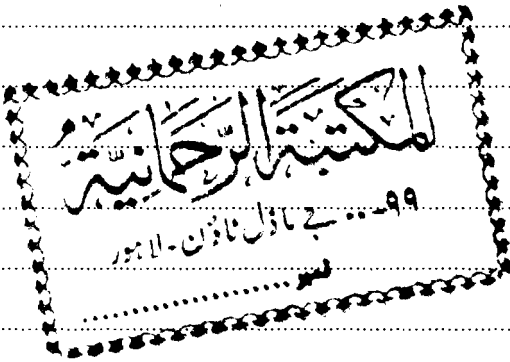 المكتبة الرحمانية
۹۹۔۔۔ جے ماڈل ٹاؤن ۔ لاہور
نمبر ........................